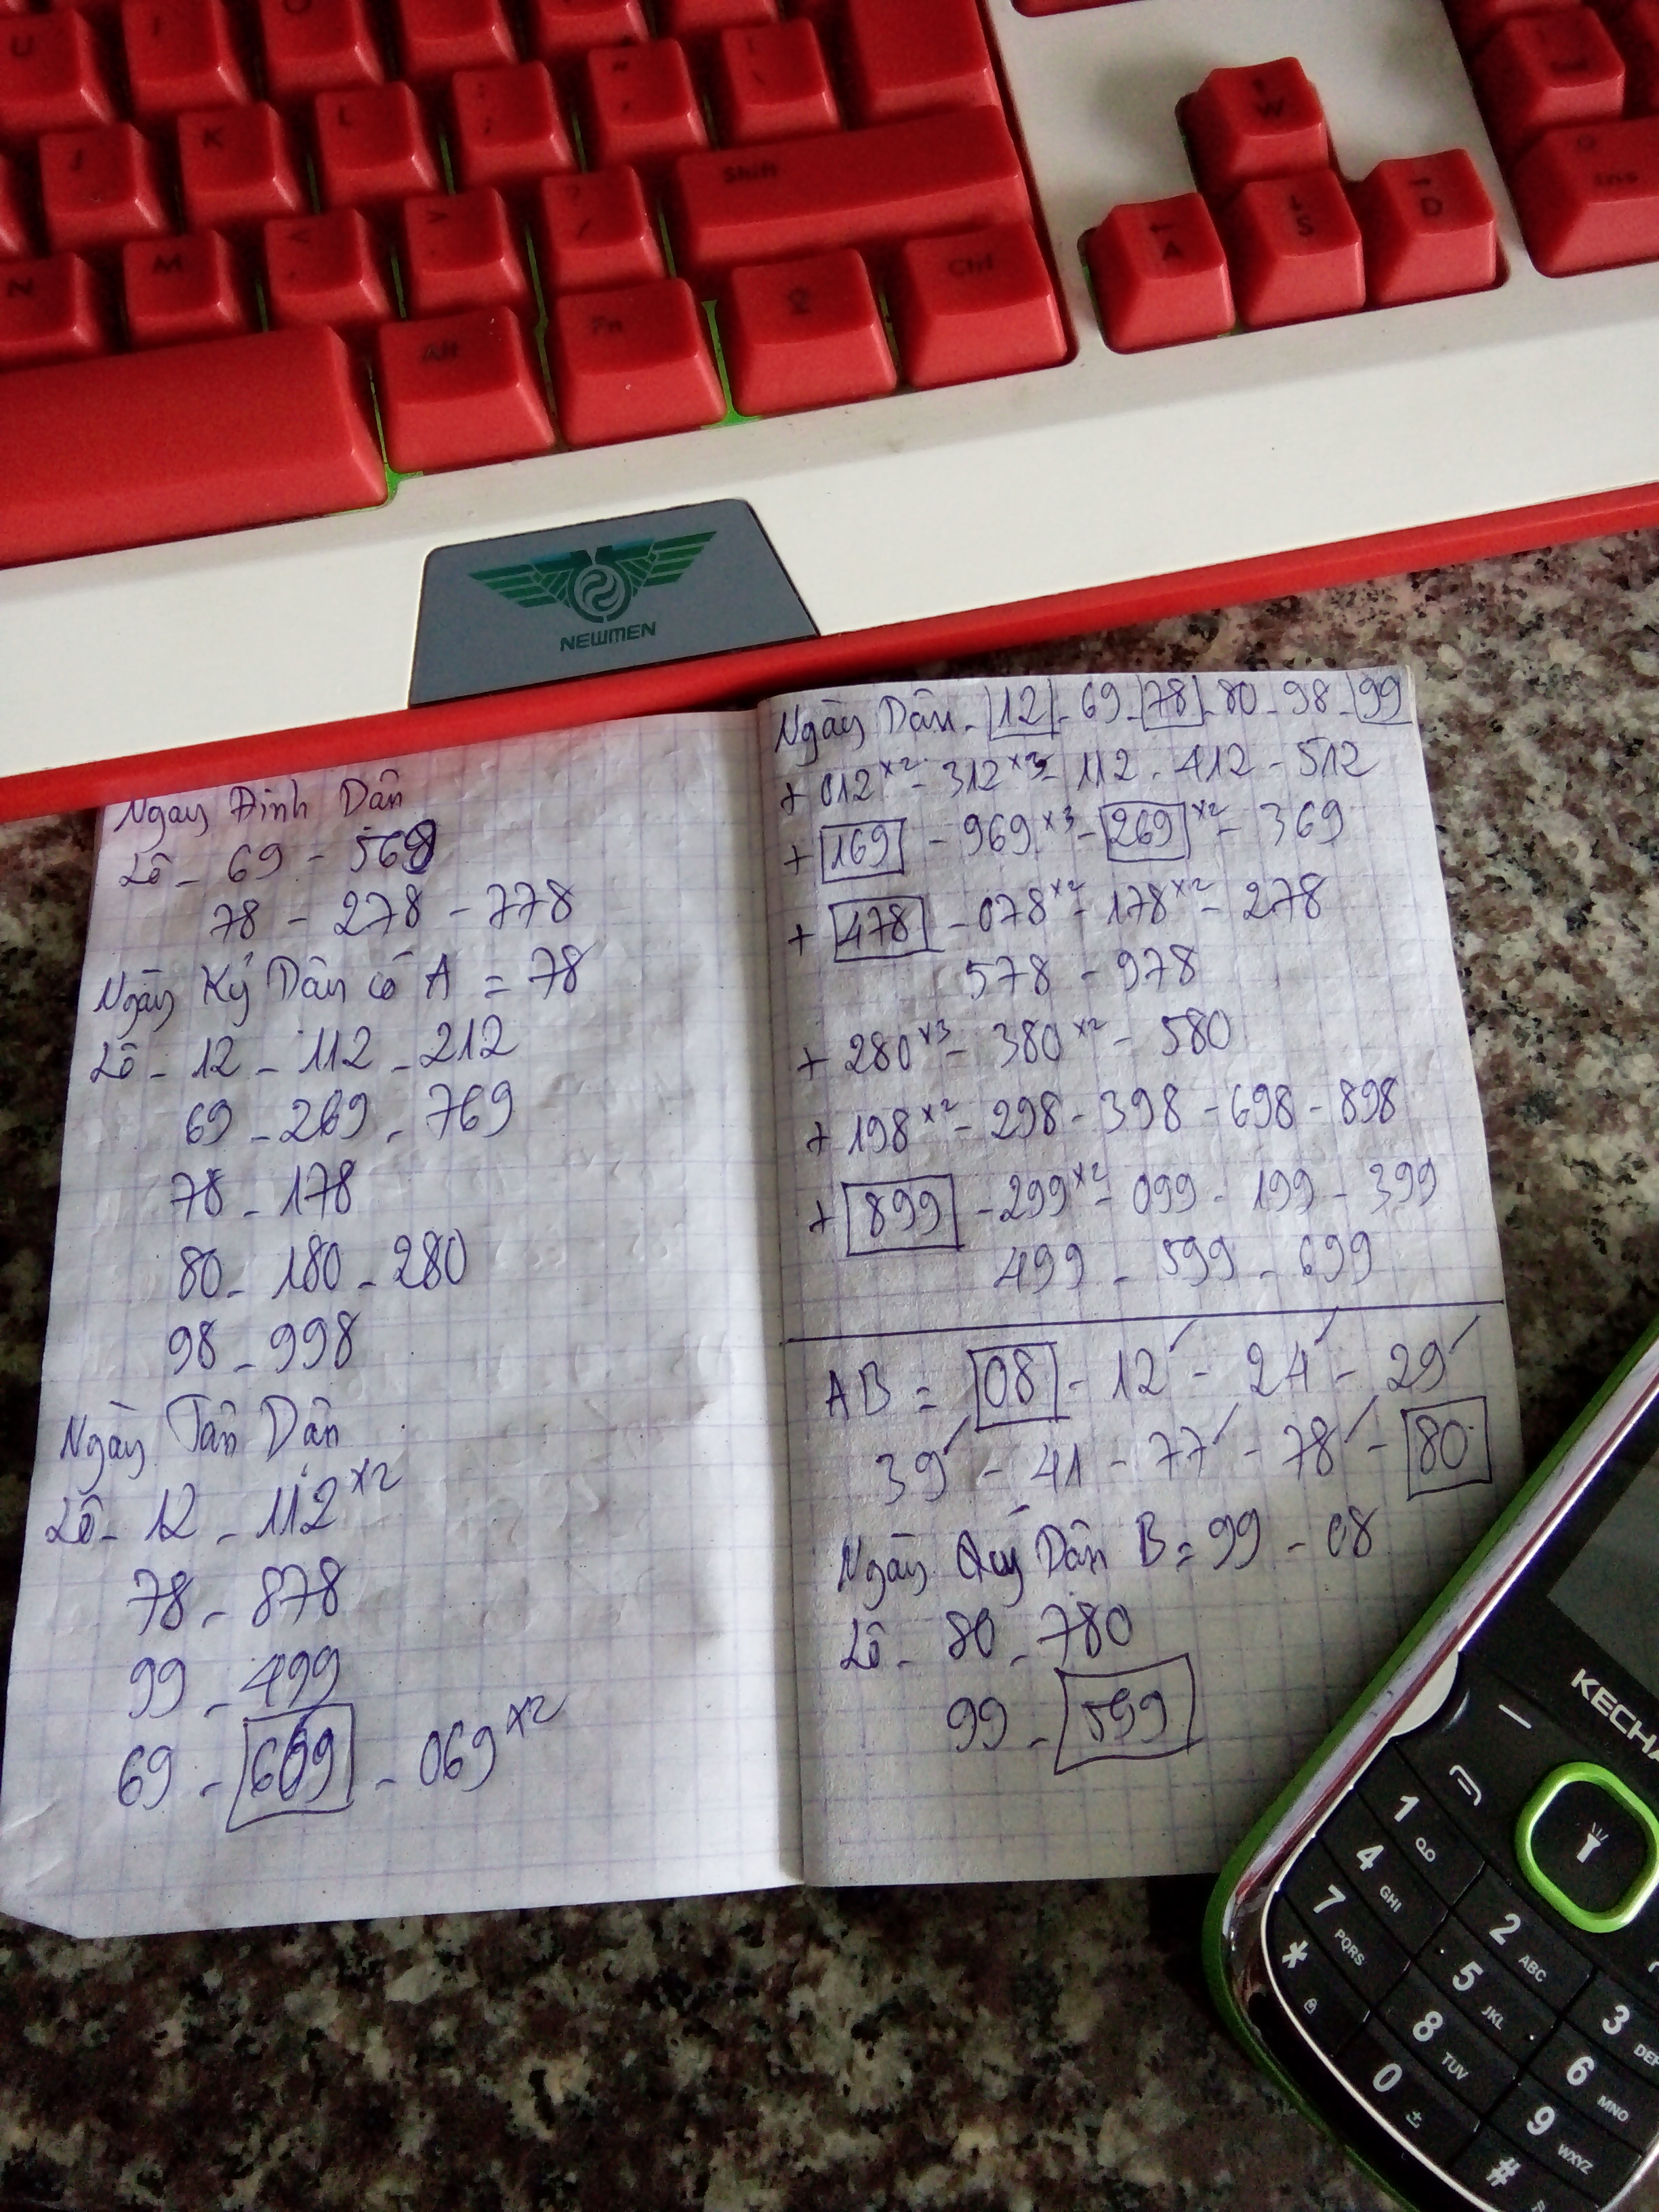 U
J
K
L
N
M
Shift
Alt
Fn
Ctrl
W
A
S
D
Ins
NEWMEN
Ngày Đinh Dần
Lô - 69 - 569
78 - 278 - 778
Ngày Kỷ Dần có A = 78
Lô - 12 - 112 - 212
69 - 269 - 769
78 - 178
80 - 180 - 280
98 - 998
Ngày Tân Dần
Lô - 12 - 112 x2
78 - 878
99 - 499
69 - 669 - 069 x2
Ngày Dần - 12 - 69 - 78 - 80 - 98 - 99
+ 012 x2 - 312 x3 - 112 - 412 - 512
+ 169 - 969 x3 - 269 x2 - 369
+ 478 - 078 x2 - 178 x2 - 278
578 - 978
+ 280 x3 - 380 x2 - 580
+ 198 x2 - 298 - 398 - 698 - 898
+ 899 - 299 x2 - 099 - 199 - 399
499 - 599 - 699
AB = 08 - 12 - 24 - 29
39 - 41 - 77 - 78 - 80
Ngày Quý Dần B = 99 - 08
Lô - 80 - 780
99 - 599
KECHA
1
4 GHI
7 PQRS
*
2 ABC
5 JKL
8 TUV
0
3 DEF
6 MNO
9 WXYZ
#